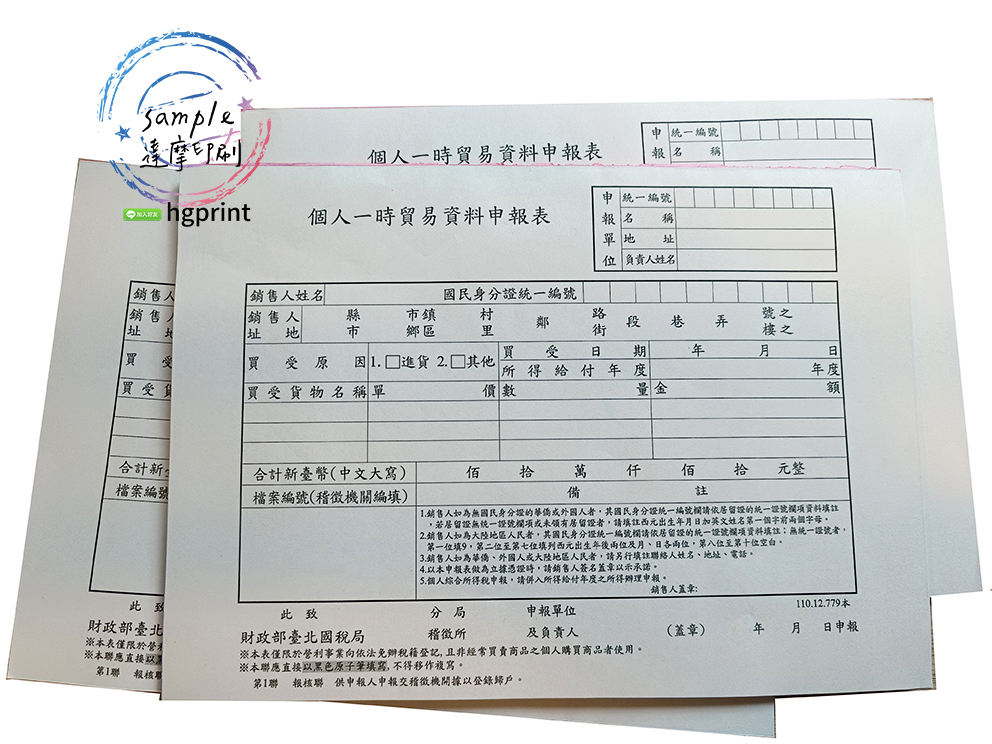 sample
達摩印刷
加入好友
hgprint
個人一時貿易資料申報表
申 統一編號
報 名 稱
個人一時貿易資料申報表
申 統一編號
報 名 稱
單 地 址
位 負責人姓名
銷售人姓名 國民身分證統一編號
銷售人址地 縣市 市鎮鄉區 村里 鄰 路街 段 巷 弄 號之樓之
買受原因 1.□進貨 2.□其他 買受日期 年 月 日
所得給付年度 年度
買受貨物名稱 單價 數量 金額
合計新臺幣(中文大寫) 佰 拾 萬 仟 佰 拾 元整
檔案編號(稽徵機關編填) 備 註
1.銷售人如為無國民身分證的華僑或外國人者，其國民身分證統一編號欄請依居留證的統一證號欄項資料填註
，若居留證無統一證號欄項或未領有居留證者，請填註西元出生年月日加英文姓名第一個字前兩個字母。
2.銷售人如為大陸地區人民者，其國民身分證統一編號欄請依居留證的統一證號欄項資料填註；無統一證號者，
第一位填9，第二位至第七位填列西元出生年後兩位及月、日各兩位，第八位至第十位空白。
3.銷售人如為華僑、外國人或大陸地區人民者，請另行填註聯絡人姓名、地址、電話。
4.以本申報表做為立據憑證時，請銷售人簽名蓋章以示承諾。
5.個人綜合所得稅申報，請併入所得給付年度之所得辦理申報。
銷售人蓋章:
110.12.779本
此 致 分 局 申報單位
財政部臺北國稅局 稽徵所 及負責人 (蓋章) 年 月 日申報
※本表僅限於營利事業向依法免辦稅籍登記,且非經常買賣商品之個人購買商品者使用。
※本聯應直接以黑色原子筆填寫,不得移作複寫。
第1聯 報核聯 供申報人申報交稽徵機關據以登錄歸戶。
銷售人
銷售人
址 地
買 受
買受貨
合計新
檔案編號
此 致
財政部臺北
※本表僅限於營利
※本聯應直接以黑
第1聯 報核聯